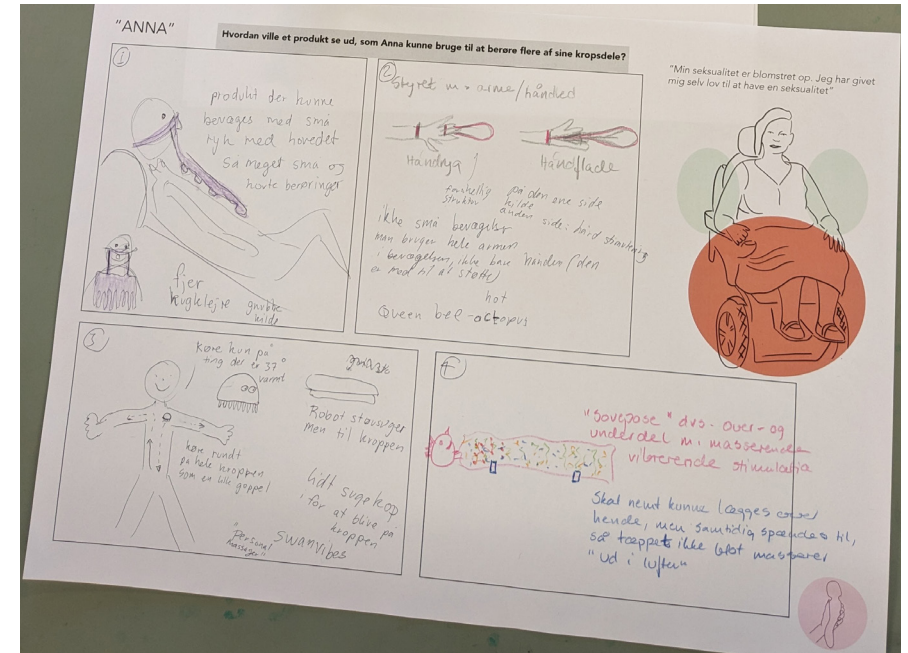 "ANNA"
Hvordan ville et produkt se ud, som Anna kunne bruge til at berøre flere af sine kropsdele?
"Min seksualitet er blomstret op. Jeg har givet
mig selv lov til at have en seksualitet"
1
produkt der kunne
bevæges med små
ryk med hovedet
så meget små og
korte berøringer
fjer
kugklejre
gnubbe
kilde
2
Styret m. arme/håndled
Håndryg
Håndflade
forskellig
struktur
på den ene side
kilde
anden side: hård
ikke små bevægelser
man bruger hele armen
i bevægelsen, ikke bare hånden (den
er med til at støtte)
hot
Queen bee-octopus
3
Køre kun på
ting der er 37°
varmt
Robot støvsuger
men til kroppen
køre rundt
på hele kroppen
som en lille goppel
Lidt sugekop
for at blive på
kroppen
"Personal
massager"
SwanVibes
4
"Sovepose" dvs. over- og
underdel m. masserende
vibrerende stimulatia
Skal nemt kunne lægges over
hende, men samtidig spændes til,
så tæppet ikke blot masserer
"ud i luften"